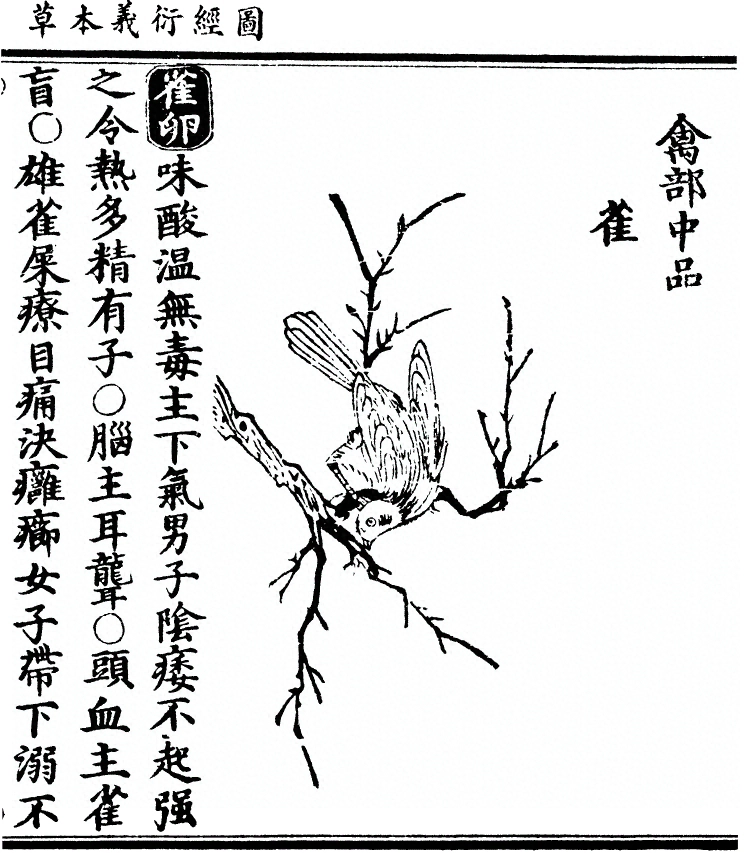 圖經衍義本草
禽部中品
雀
雀卵味酸温無毒主下氣男子陰痿不起强
之令熱多精有子○腦主耳聾○頭血主雀
盲○雄雀屎療目痛決癰癤女子帶下溺不